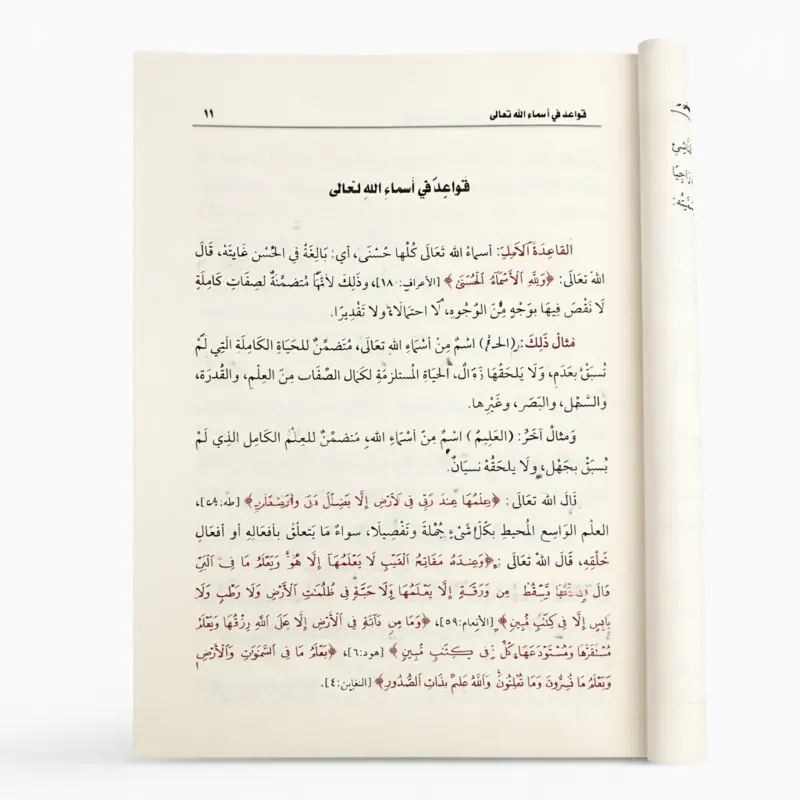 قواعد في أسماء الله تعالى ١١
قواعد في أسماء الله تعالى
القاعدة: أسماء الله تَعَالَى كُلُّها حُسْنَى، أي: بَالِغَةُ في الحُسْن غَايَتَهُ، قَالَ
الله تعَالَى: ﴿وَلِلَّهِ الْأَسْمَاءُ الْحُسْنَى﴾ [الأعراف: ١٨٠]، وذَلِكَ لأنَّهَا مُتضمِّنةٌ لصِفَاتٍ كَامِلَةٍ
لَا نَقْصَ فِيهَا بوَجْهٍ مِّنَ الوُجُوهِ، لَا احتمَالًا، ولا تَقْدِيرًا.
مَثالُ ذَلِكَ: اسْمٌ مِنْ أسْمَاءِ الله تعَالَى، مُتَضمِّنٌ للحَيَاةِ الكَامِلَةِ الَّتِي لَمْ
تُسبَقْ بعَدَمٍ، وَلَا يَلحَقُهَا زَوَالٌ، الحَيَاةِ المُستلزمَةِ لكَمَال الصِّفَات مِنَ العِلْمِ، والقُدرَة،
والبَصَر، وغَيْرها.
وَمثالٌ آخَرُ: (العَلِيمُ) اسْمٌ مِنْ أسْمَاءِ الله، مُتضمِّنٌ للعِلْمِ الكَامِل الذِي لَمْ
يُسبَقْ بجَهْلٍ، ولَا يلحَقُهُ نسيَانٌ.
قَالَ الله تعَالَى: ﴿عِلْمُهَا عِندَ رَبِّي فِي
العلْم الوَاسِع المُحيطِ بكُلِّ شَيْءٍ جُملَةً وتَفْصِيلًا، سواءٌ مَا يَتعلَّقُ بأفعَالِهِ أو أفعَالِ
خَلْقِهِ، قَالَ اللهُ تعَالَى: ﴿وَعِندَهُ مَفَاتِحُ الْغَيْبِ لَا يَعْلَمُهَا إِلَّا هُوَ وَيَعْلَمُ مَا فِي
مِن وَرَقَةٍ إِلَّا يَعْلَمُهَا وَلَا حَبَّةٍ فِي ظُلُمَاتِ الْأَرْضِ وَلَا رَطْبٍ وَلَا
يَابِسٍ إِلَّا فِي كِتَابٍ مُّبِينٍ﴾ [الأنعام: ٥٩]، ﴿وَمَا مِن دَابَّةٍ فِي الْأَرْضِ إِلَّا عَلَى اللَّهِ رِزْقُهَا وَيَعْلَمُ
مُسْتَقَرَّهَا وَمُسْتَوْدَعَهَا كُلٌّ فِي كِتَابٍ مُّبِينٍ﴾ [هود: ٦]، ﴿يَعْلَمُ مَا فِي السَّمَاوَاتِ وَالْأَرْضِ
وَيَعْلَمُ مَا تُسِرُّونَ وَمَا تُعْلِنُونَ وَاللَّهُ عَلِيمٌ بِذَاتِ الصُّدُورِ﴾ [التغابن: ٤].